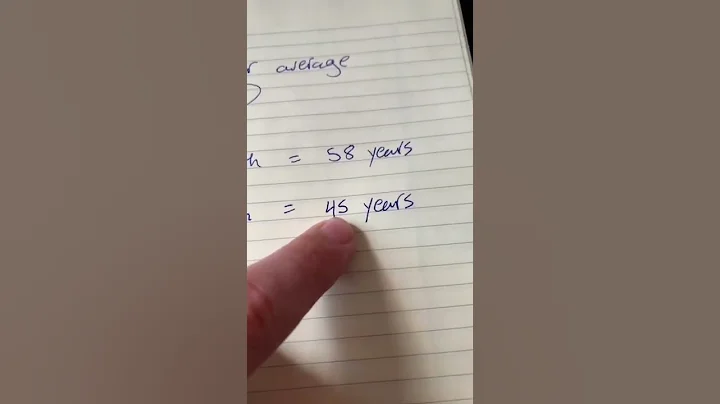 average
= 58 years
= 45 years